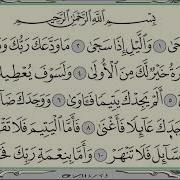 بِسْمِ اللَّهِ الرَّحْمَٰنِ الرَّحِيمِ
وَاللَّيْلِ إِذَا سَجَىٰ ٢ مَا وَدَّعَكَ رَبُّكَ
خَيْرٌ لَّكَ مِنَ الْأُولَىٰ ٤ وَلَسَوْفَ يُعْطِيكَ
أَلَمْ يَجِدْكَ يَتِيمًا فَآوَىٰ ٦ وَوَجَدَكَ
وَوَجَدَكَ عَائِلًا فَأَغْنَىٰ ٨ فَأَمَّا الْيَتِيمَ فَلَا
السَّائِلَ فَلَا تَنْهَرْ ١٠ وَأَمَّا بِنِعْمَةِ رَبِّكَ